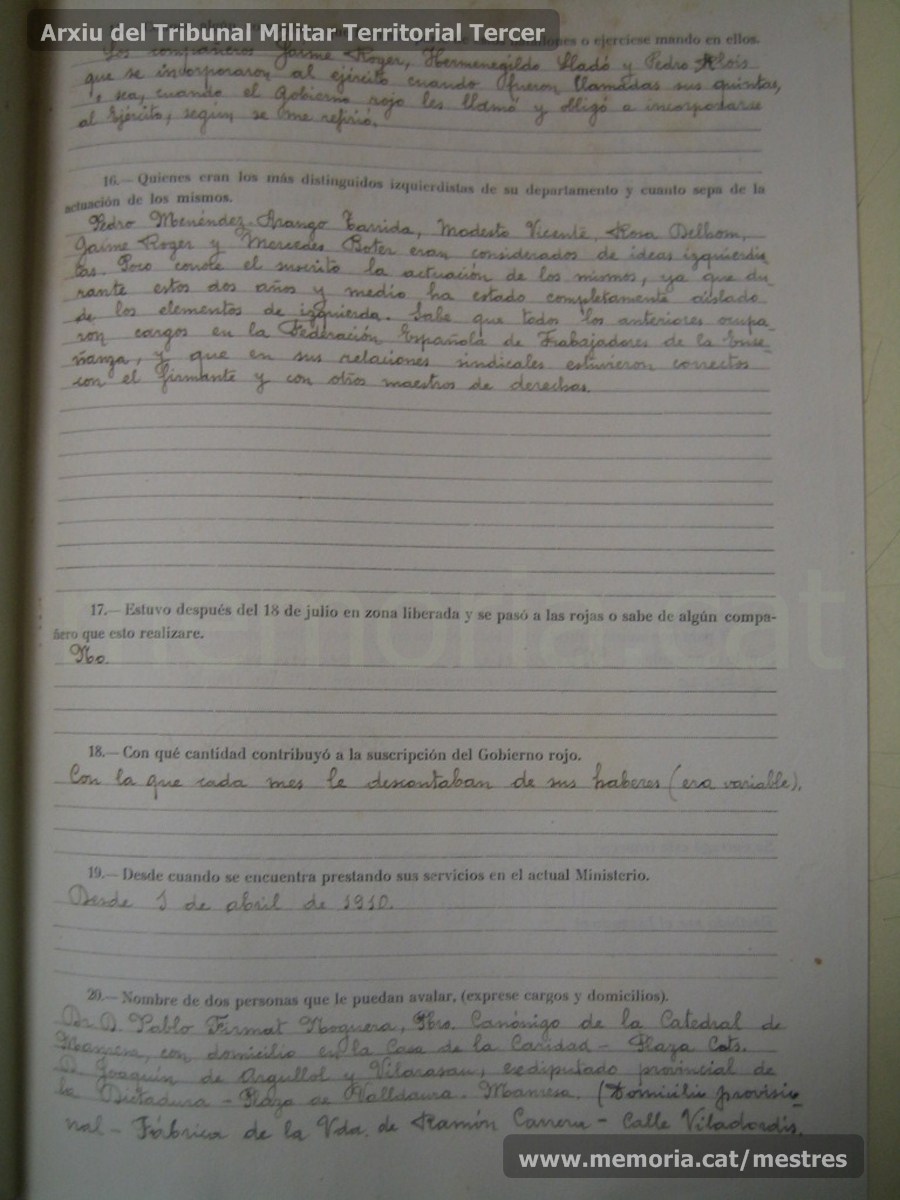 Arxiu del Tribunal Militar Territorial Tercer
o ejerciese mando en ellos.
Los compañeros Jaime Roger, Hermenegildo Lladó y Pedro
que se incorporaron al ejército cuando fueron llamadas sus quintas,
o sea, cuando el Gobierno rojo les llamó y obligó a incorporarse
al Ejército, según se me refirió.
16.— Quienes eran los más distinguidos izquierdistas de su departamento y cuanto sepa de la
actuación de los mismos.
Pedro Menéndez-Arango Tarrida, Modesto Vicente, Rosa Delhom,
Jaime Roger y Mercedes Boter eran considerados de ideas izquierdis
tas. Poco conoce el suscrito la actuación de los mismos, ya que du
rante estos dos años y medio ha estado completamente aislado
de los elementos de izquierda. Sabe que todos los anteriores ocupa-
ron cargos en la Federación Española de Trabajadores de la Ense-
ñanza, y que en sus relaciones sindicales estuvieron correctos
con el firmante y con otros maestros de derechas.
17.— Estuvo después del 18 de julio en zona liberada y se pasó a las rojas o sabe de algún compa-
ñero que esto realizare.
No.
memoria.cat
18.— Con qué cantidad contribuyó a la suscripción del Gobierno rojo.
Con la que cada mes le descontaban de sus haberes (era variable).
19.— Desde cuando se encuentra prestando sus servicios en el actual Ministerio.
Desde 1 de abril de 1910.
20.— Nombre de dos personas que le puedan avalar, (exprese cargos y domicilios).
Dr. D. Pablo Firmat Noguera, Pbro. Canónigo de la Catedral de
Manresa, con domicilio en la Casa de la Caridad – Plaza Cots.
D. Joaquín de Argullol y Vilarasau, exdiputado provincial de
la Dictadura – Plaza de Valldaura. Manresa. (Domicilio provisio-
nal – Fábrica de la Vda. de Ramón Carrera – Calle Viladordis.
www.memoria.cat/mestres